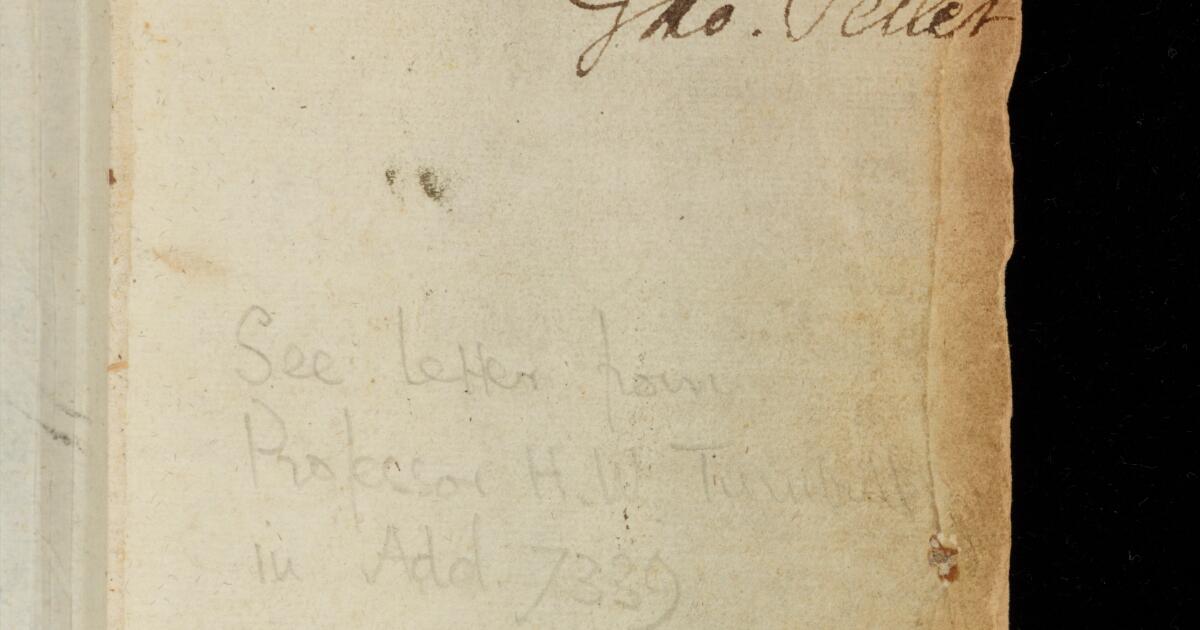 Tho. Pellet
See letter from
Professor H.W. Turnbull
in Add. 7339